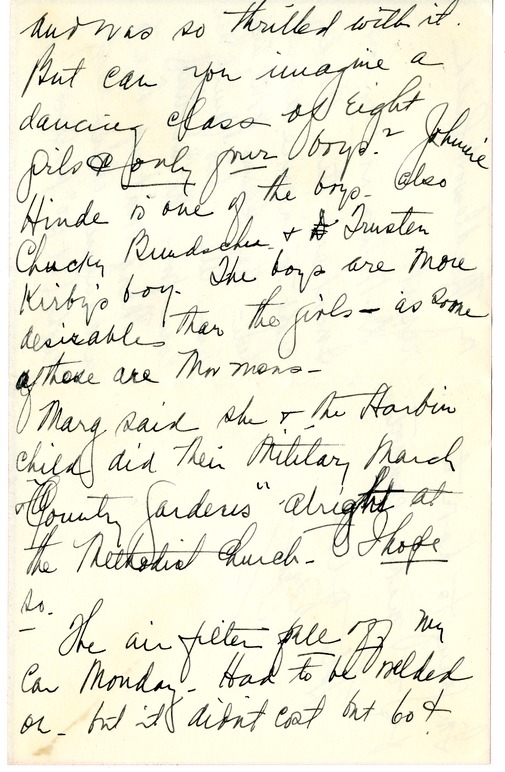 and was so thrilled with it.
But can you imagine a
dancing class of Eight
girls & only four boys? Johnnie
Hinde is one of the boys - also
Chucky Bundschu & Trusten
Kirby's boy. The boys are more
desirables than the girls - as some
of those are Mormons -
Marg said she & the Harbin
child did their Military March
+ "Country Gardens" alright at
the Methodist Church - I hope
so.
The air filter fell off my
car Monday - Had to be welded
on - but it didn't cost but 60¢